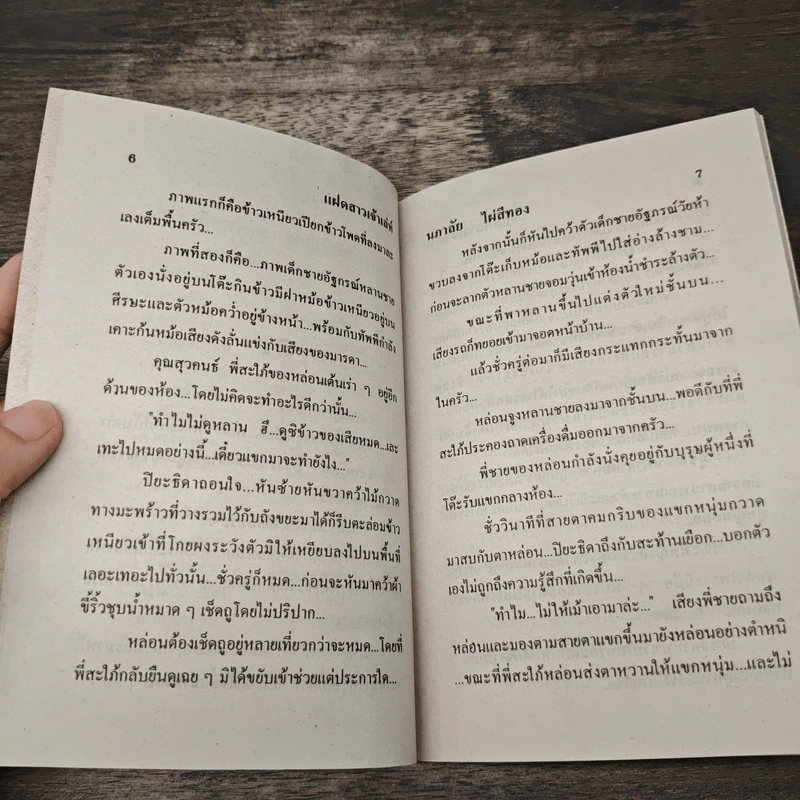 6
แฝดสาวเจ้าเล่ห์
ภาพแรกก็คือข้าวเหนียวเปียกข้าวโพดที่ลงมาละ
เลงเต็มพื้นครัว...
ภาพที่สองก็คือ...ภาพเด็กชายอัฐกรณ์หลานชาย
ตัวเองนั่งอยู่บนโต๊ะกินข้าวมีฝาหม้อข้าวเหนียวอยู่บน
ศีรษะและตัวหม้อคว่ำอยู่ข้างหน้า...พร้อมกับทัพพีกำลัง
เคาะก้นหม้อเสียงดังลั่นแข่งกับเสียงของมารดา...
คุณสุวคนธ์ พี่สะใภ้ของหล่อนเต้นเร่า ๆ อยู่อีก
ด้านของห้อง...โดยไม่คิดจะทำอะไรดีกว่านั้น...
"ทำไมไม่ดูหลาน ฮึ...ดูซิข้าวของเสียหมด...เละ
เทะไปหมดอย่างนี้...เดี๋ยวแขกมาจะทำยังไง..."
ปิยะธิดาถอนใจ...หันซ้ายหันขวาคว้าไม้กวาด
ทางมะพร้าวที่วางรวมไว้กับถังขยะมาได้ก็รีบตะล่อมข้าว
เหนียวเข้าที่โกยผงระวังตัวมิให้เหยียบลงไปบนพื้นที่
เลอะเทอะไปทั่วนั้น...ชั่วครู่ก็หมด...ก่อนจะหันมาคว้าผ้า
ขี้ริ้วชุบน้ำหมาด ๆ เช็ดถูโดยไม่ปริปาก...
หล่อนต้องเช็ดถูอยู่หลายเที่ยวกว่าจะหมด...โดยที่
พี่สะใภ้กลับยืนดูเฉย ๆ มิได้ขยับเข้าช่วยแต่ประการใด...
7
นภาลัย ไผ่สีทอง
หลังจากนั้นก็หันไปคว้าตัวเด็กชายอัฐภรณ์วัยห้า
ขวบลงจากโต๊ะเก็บหม้อและทัพพีไปใส่อ่างล้างชาม...
ก่อนจะลากตัวหลานชายจอมวุ่นเข้าห้องน้ำชำระล้างตัว...
ขณะที่พาหลานขึ้นไปแต่งตัวใหม่ชั้นบน...
เสียงรถก็ทยอยเข้ามาจอดหน้าบ้าน...
แล้วชั่วครู่ต่อมาก็มีเสียงกระแทกกระทั้นมาจาก
ในครัว...
หล่อนจูงหลานชายลงมาจากชั้นบน...พอดีกับที่พี่
สะใภ้ประคองถาดเครื่องดื่มออกมาจากครัว...
พี่ชายของหล่อนกำลังนั่งคุยอยู่กับบุรุษผู้หนึ่งที่
โต๊ะรับแขกกลางห้อง...
ชั่ววินาทีที่สายตาคมกริบของแขกหนุ่มกวาด
มาสบกับตาหล่อน...ปิยะธิดาถึงกับสะท้านเยือก...บอกตัว
เองไม่ถูกถึงความรู้สึกที่เกิดขึ้น...
"ทำไม...ไม่ให้เม้าเอามาล่ะ..." เสียงพี่ชายถามถึง
หล่อนและมองตามสายตาแขกขึ้นมายังหล่อนอย่างตำหนิ
...ขณะที่พี่สะใภ้หล่อนส่งตาหวานให้แขกหนุ่ม...และไม่